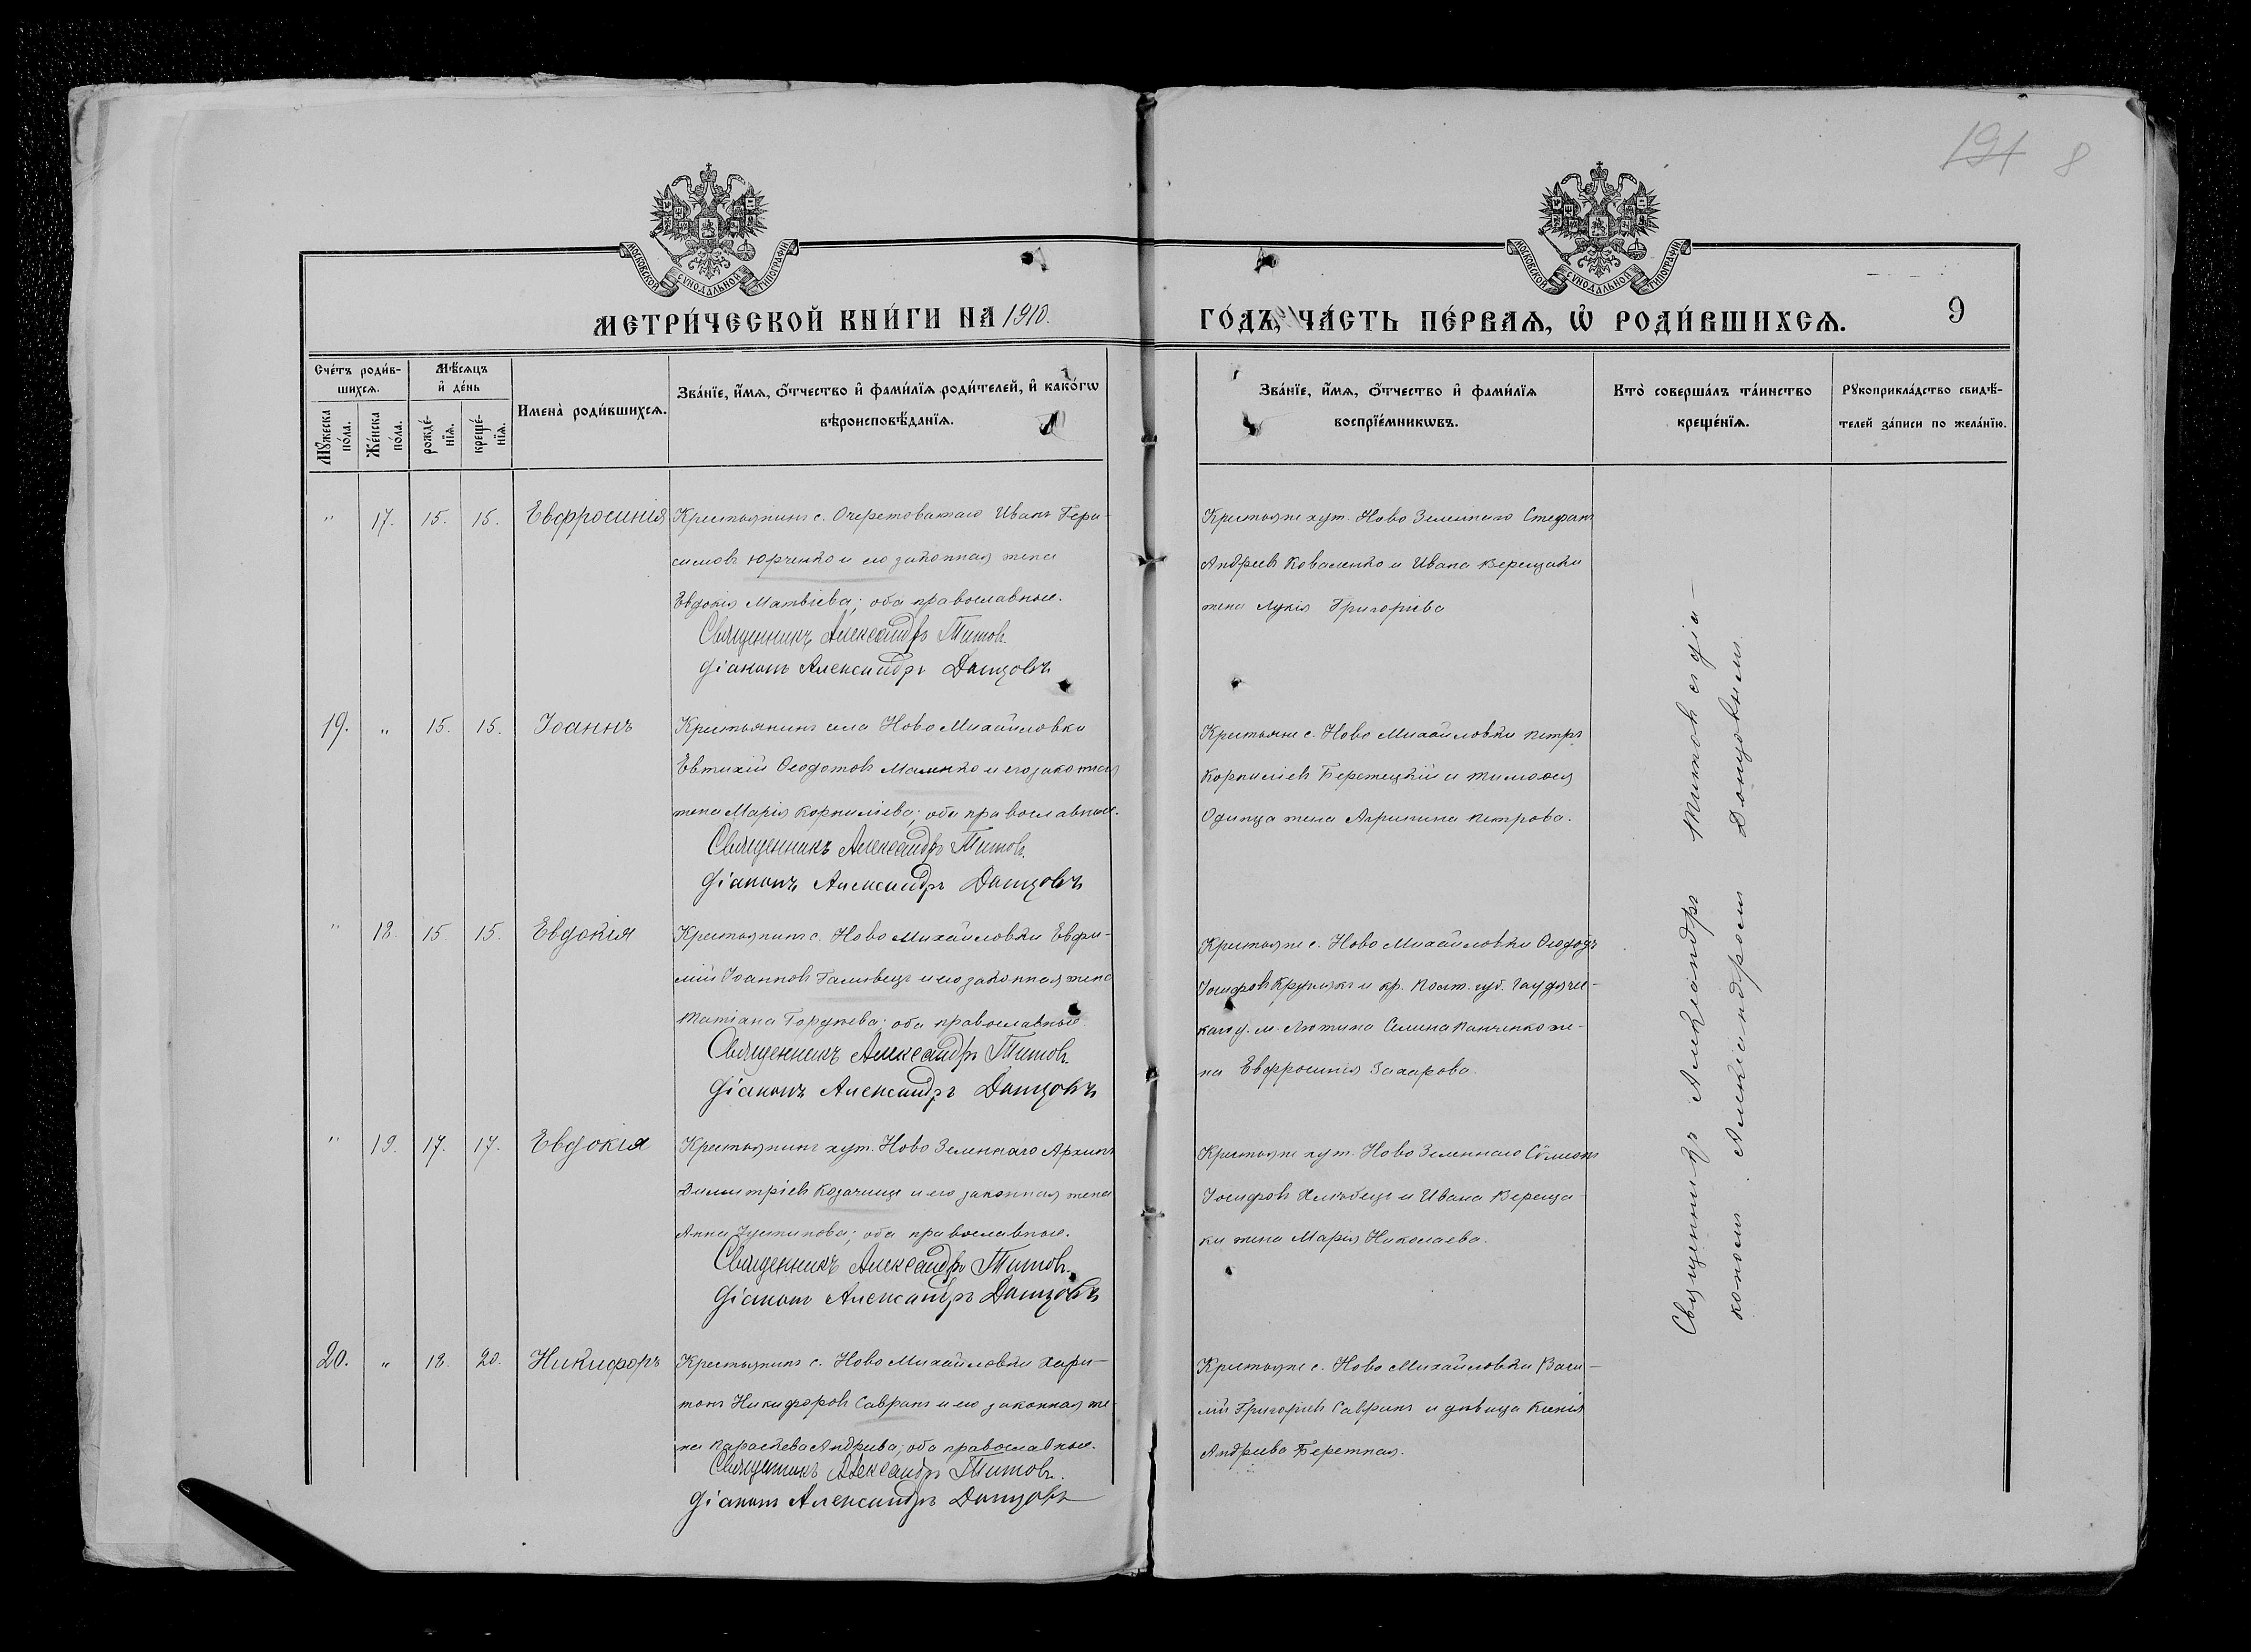 194 8
МОСКОВСКОЙ СѴНОДАЛЬНОЙ ТИПОГРАФІИ
МОСКОВСКОЙ СѴНОДАЛЬНОЙ ТИПОГРАФІИ
МЕТРИ́ЧЕСКОЙ КНИ́ГИ НА 1910.
ГО́ДЪ, ЧА́СТЬ ПЕ́РВАѦ, Ѡ҆ РОДИ́ВШИХСѦ.
9
Сче́тъ роди́в-
шихсѧ.
Мꙋ́жеска по́ла.
Же́нска по́ла.
Мѣ́сѧцъ
и҆ де́нь
рожде́-
нїѧ.
креще́-
нїѧ.
Имена̀ роди́вшихсѧ.
Зва́нїе, и҆́мѧ, ѻ҆́тчество и҆ фами́лїѧ роди́телей, и҆ како́гѡ
вѣроисповѣ́данїѧ.
Зва́нїе, и҆́мѧ, ѻ҆́тчество и҆ фами́лїѧ
воспрїе́мникѡвъ.
Кто̀ соверша́лъ та́инство
креще́нїѧ.
Рꙋкоприкла́дство свидѣ́-
телей за́писи по жела́нїю.
" 17. 15. 15. Евфросинія
Крестьянинъ с. Очеретоватаго Иванъ Гера-
симовъ Юрченко и его законная жена
Евдокія Матвіева; оба православные.
Священникъ Александръ Титовъ.
Діаконъ Александръ Донцовъ
Крестьяне хут. Ново Зеленаго Стефанъ
Андреевъ Коваленко и Ивана Верещаки
жена Лукія Григоріева
19. " 15. 15. Іоаннъ
Крестьянинъ села Ново Михайловки
Евтихій Ѳеодотовъ Маленко и его законная
жена Марія Корниліева; оба православные.
Священникъ Александръ Титовъ.
Діаконъ Александръ Донцовъ
Крестьяне с. Ново Михайловки Петръ
Корниліевъ и Тимоѳея
Одинца жена Агрипина Петрова.
" 18. 15. 15. Евдокія
Крестьянинъ с. Ново Михайловки Евфи-
мій Іоанновъ и его законная жена
Татіана оба православные.
Священникъ Александръ Титовъ.
Діаконъ Александръ Донцовъ
Крестьяне с. Ново Михайловки Ѳеодоръ
Іосифовъ Круглякъ и кр. Полт. губ. Гадячс-
каго у. м. Лютина Семена Панченко же-
на Евфросинія Захарова.
" 19. 17. 17. Евдокія
Крестьянинъ хут. Ново Зеленаго Архипъ
Димитріевъ и его законная жена
Анна Іустинова; оба православные.
Священникъ Александръ Титовъ.
Діаконъ Александръ Донцовъ
Крестьяне хут. Ново Зеленаго Сѵмеонъ
Іосифовъ и Ивана Вереща-
ки жена Марія Николаева.
20. " 18. 20. Никифоръ
Крестьянинъ с. Ново Михайловки Хари-
тонъ Никифоровъ Савранъ и его законная же-
на Параскева Андреева; оба православные.
Священникъ Александръ Титовъ.
Діаконъ Александръ Донцовъ
Крестьяне с. Ново Михайловки Васи-
лій Григоріевъ Савранъ и дѣвица Ксенія
Андреева Бережная.
Священникъ Александръ Титовъ съ діа-
кономъ Александромъ Донцовымъ.